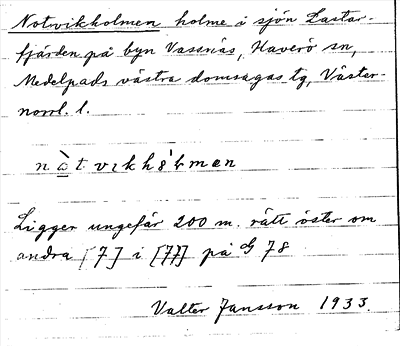 Notvikholmen holme i sjön Lastar-
fjärden på byn Vassnäs, Haverö sn,
Medelpads västra domsagas tg, Väster-
norrl. l.
Ligger ungefär 200 m. rätt öster om
andra [7] i [77] på G 78
Valter Jansson 1933.